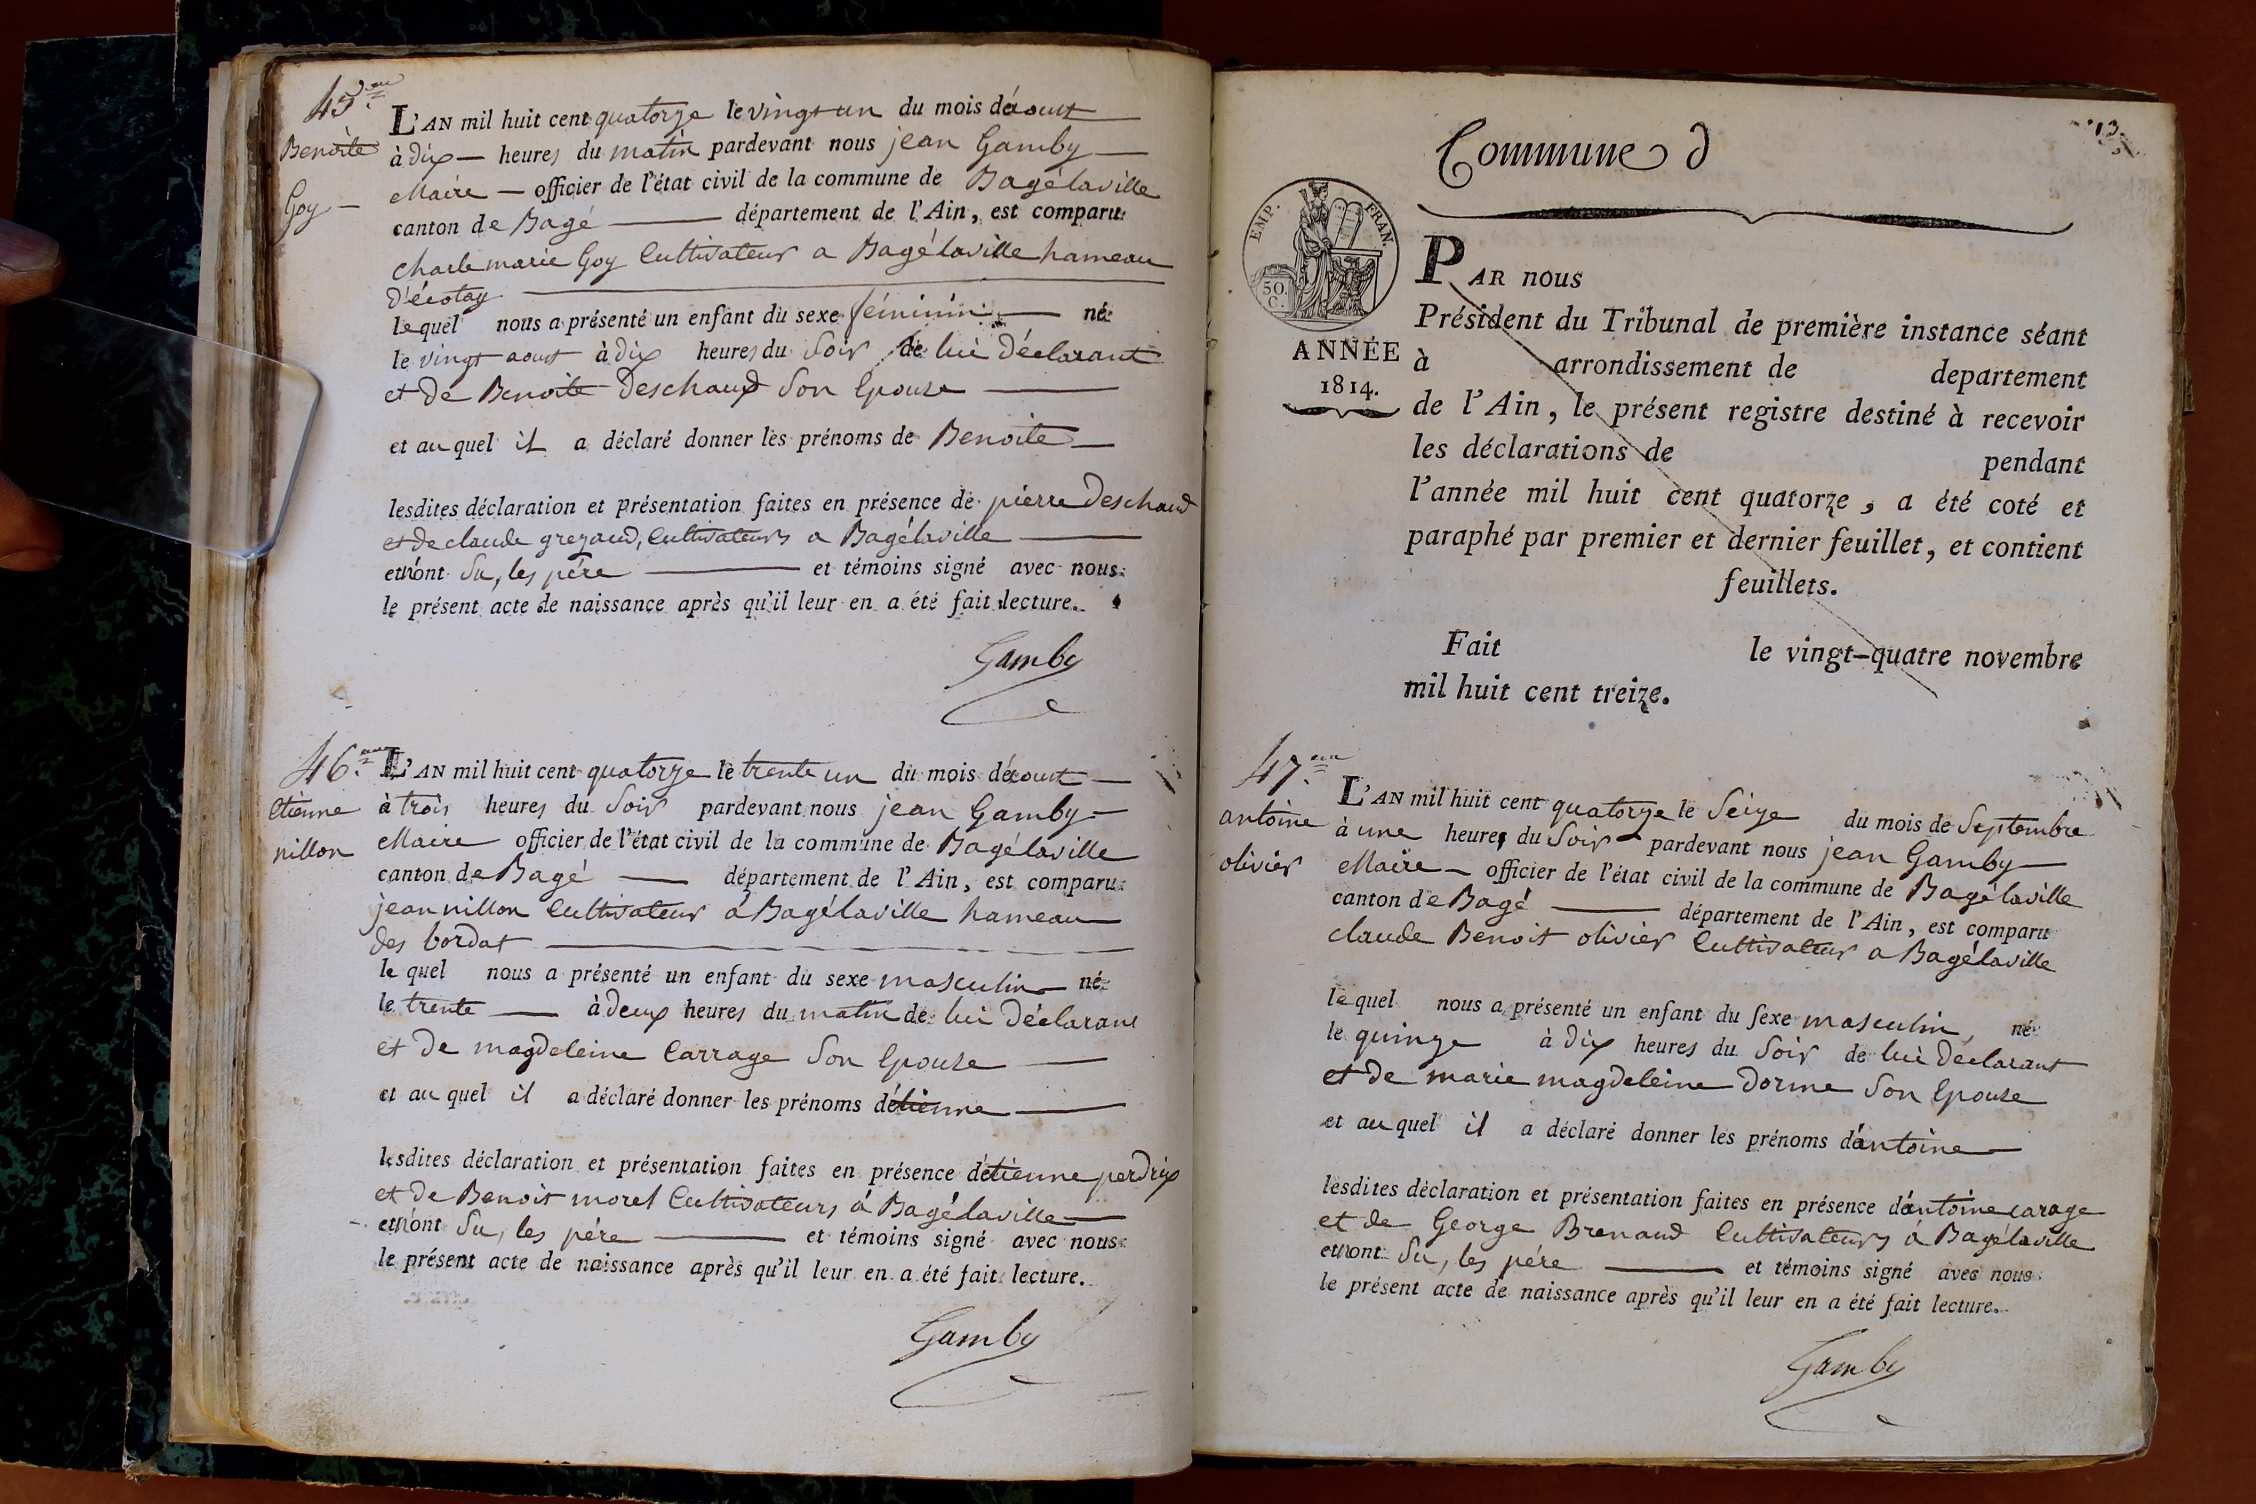 45.me
Benoite
Goy
L'AN mil huit cent quatorze le vingt un du mois d'aoust
à dix heures du matin pardevant nous jean Gamby
Maire officier de l'état civil de la commune de Bagélaville
canton de Bagé département de l'Ain, est comparu
charle marie Goy Cultivateur a Bagélaville hameau
D'écotay
le quel nous a présenté un enfant du sexe féminin né
le vingt aoust à dix heures du Soir de lui Déclarant
et de Benoite Deschaux Son Epouse
et au quel il a déclaré donner les prénoms de Benoite
lesdites déclaration et présentation faites en présence de pierre Deschaud
et de claude grezaud, Cultivateurs a Bagélaville
et n'ont Su, les pére et témoins signé avec nous
le présent acte de naissance après qu'il leur en a été fait lecture.
Gamby
46.me
etienne
nillon
L'AN mil huit cent quatorze le trente un du mois d'aoust
à trois heures du Soir pardevant nous jean Gamby
Maire officier de l'état civil de la commune de Bagélaville
canton de Bagé département de l'Ain, est comparu
jean nillon Cultivateur à Bagélaville hameau
des bordat
le quel nous a présenté un enfant du sexe masculin né
le trente à deux heures du matin de lui Déclarant
et de magdeleine Carrage Son Epouse
et au quel il a déclaré donner les prénoms d'étienne
lesdites déclaration et présentation faites en présence d'etienne perdrix
et de Benoit morel Cultivateurs á Bagélaville
et n'ont Su, les pére et témoins signé avec nous
le présent acte de naissance après qu'il leur en a été fait lecture.
Gamby
13.
Commune d
EMP. FRAN.
50.
C.
ANNÉE
1814.
PAR nous
Président du Tribunal de première instance séant
à arrondissement de departement
de l'Ain, le présent registre destiné à recevoir
les déclarations de pendant
l'année mil huit cent quatorze, a été coté et
paraphé par premier et dernier feuillet, et contient
feuillets.
Fait le vingt-quatre novembre
mil huit cent treize.
47.me
antoine
olivier
L'AN mil huit cent quatorze le Seize du mois de Septembre
à une heures du Soir pardevant nous jean Gamby
Maire officier de l'état civil de la commune de Bagélaville
canton de Bagé département de l'Ain, est comparu
claude Benoit olivier Cultivateur a Bagélaville
le quel nous a présenté un enfant du sexe masculin, né
le quinze à dix heures du Soir de lui Déclarant
et de marie magdeleine Dorme Son Epouse
et au quel il a déclaré donner les prénoms d'antoine
lesdites déclaration et présentation faites en présence d'antoine carage
et de George Brenaud Cultivateurs á Bagélaville
et n'ont Su, les pére et témoins signé avec nous
le présent acte de naissance après qu'il leur en a été fait lecture.
Gamby